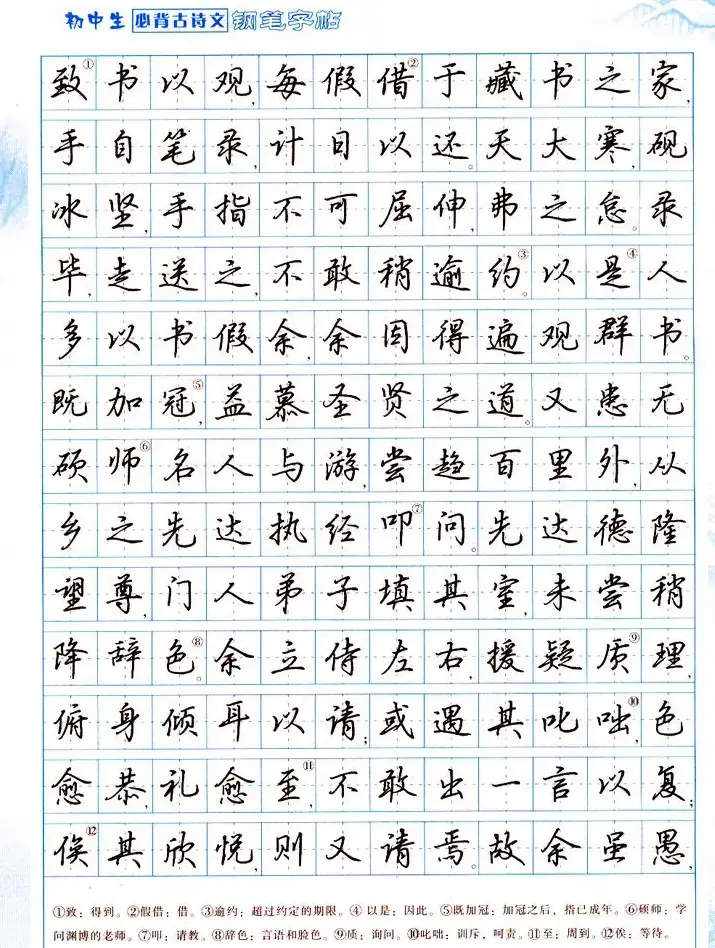 初中生 必背古诗文 钢笔字帖
致①书以观,每假借②于藏书之家,
手自笔录,计日以还。天大寒,砚
冰坚,手指不可屈伸,弗之怠。录
毕,走送之,不敢稍逾约③。以是④人
多以书假余,余因得遍观群书。
既加冠⑤,益慕圣贤之道。又患无
硕师⑥名人与游,尝趋百里外,从
乡之先达执经叩⑦问。先达德隆
望尊,门人弟子填其室,未尝稍
降辞色⑧。余立侍左右,援疑质⑨理,
俯身倾耳以请;或遇其叱咄⑩,色
愈恭,礼愈至⑪,不敢出一言以复;
俟⑫其欣悦,则又请焉。故余虽愚,
①致:得到。②假借:借。③逾约:超过约定的期限。④以是:因此。⑤既加冠:加冠之后,指已成年。⑥硕师:学
问渊博的老师。⑦叩:请教。⑧辞色:言语和脸色。⑨质:询问。⑩叱咄:训斥,呵责。⑪至:周到。⑫俟:等待。